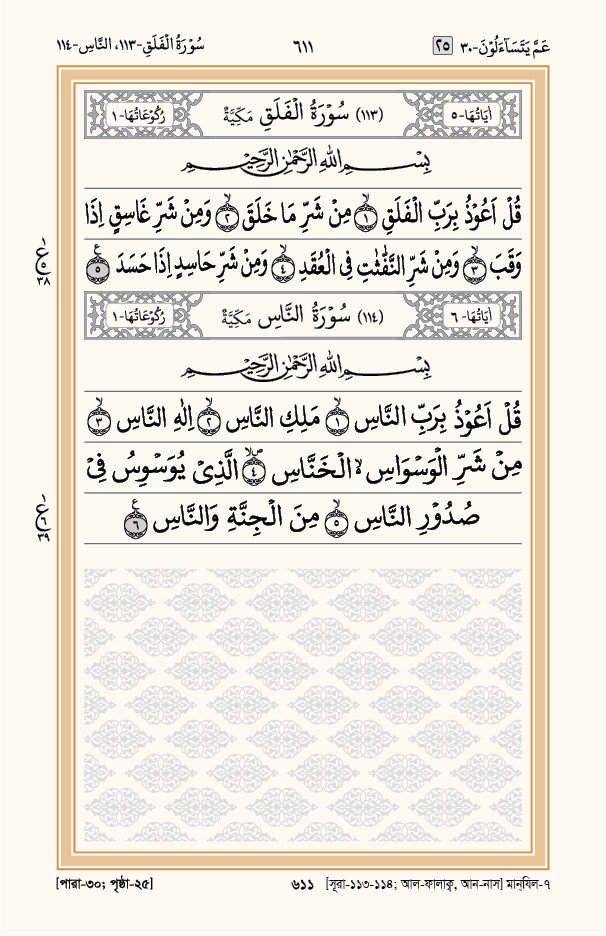 عَمَّ يَتَسَآءَلُوْنَ-٣٠ ٢٥ ٦١١ سُوْرَةُ الْفَلَقِ-١١٣، النَّاسِ-١١٤
اٰيَاتُهَا-٥ (١١٣) سُوْرَةُ الْفَلَقِ مَكِّيَّةٌ رُكُوْعَاتُهَا-١
بِسْــمِ اللهِ الرَّحْمٰنِ الرَّحِيْـمِ
قُلْ اَعُوْذُ بِرَبِّ الْفَلَقِ ۙ‏﴿١﴾ مِنْ شَرِّ مَا خَلَقَ ۙ‏﴿٢﴾ وَمِنْ شَرِّ غَاسِقٍ اِذَا
وَقَبَ ۙ‏﴿٣﴾ وَمِنْ شَرِّ النَّفّٰثٰتِ فِى الْعُقَدِ ۙ‏﴿٤﴾ وَمِنْ شَرِّ حَاسِدٍ اِذَا حَسَدَ ﴿٥﴾ ع
ع ٥ ٣٨
اٰيَاتُهَا-٦ (١١٤) سُوْرَةُ النَّاسِ مَكِّيَّةٌ رُكُوْعَاتُهَا-١
بِسْــمِ اللهِ الرَّحْمٰنِ الرَّحِيْـمِ
قُلْ اَعُوْذُ بِرَبِّ النَّاسِ ۙ‏﴿١﴾ مَلِكِ النَّاسِ ۙ‏﴿٢﴾ اِلٰهِ النَّاسِ ۙ‏﴿٣﴾
مِنْ شَرِّ الْوَسْوَاسِ ۙ الْخَنَّاسِ ۙ‏ص﴿٤﴾ الَّذِىْ يُوَسْوِسُ فِىْ
صُدُوْرِ النَّاسِ ۙ‏﴿٥﴾ مِنَ الْجِنَّةِ وَالنَّاسِ ﴿٦﴾ ع
ع ٦ ٣٩
[পারা-৩০; পৃষ্ঠা-২৫] ৬১১ [সূরা-১১৩-১১৪; আল-ফালাক্ব, আন-নাস] মান্‌যিল-৭